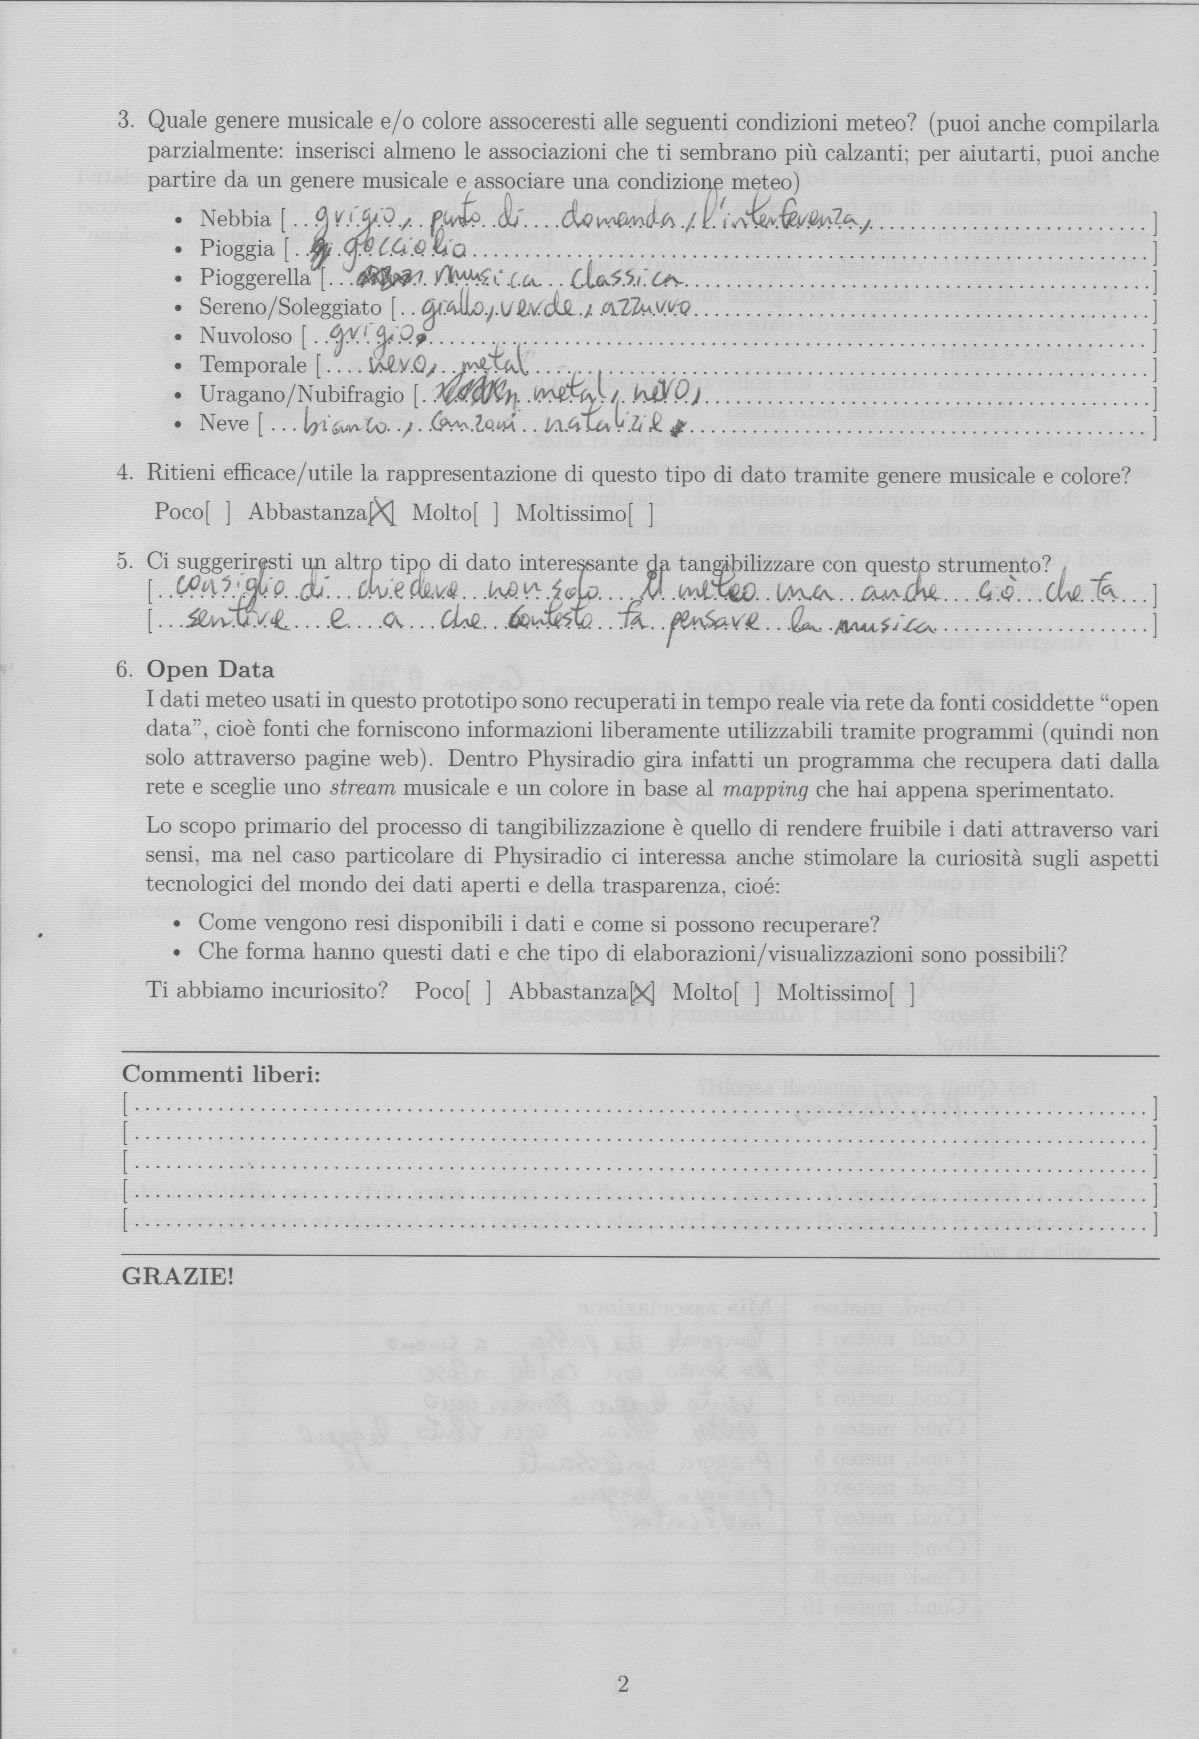 3. Quale genere musicale e/o colore assoceresti alle seguenti condizioni meteo? (puoi anche compilarla
parzialmente: inserisci almeno le associazioni che ti sembrano più calzanti; per aiutarti, puoi anche
partire da un genere musicale e associare una condizione meteo)
• Nebbia [ grigio, punto di domanda, l'interferenza, ]
• Pioggia [ gocciolio ]
• Pioggerella [ musica classica ]
• Sereno/Soleggiato [ giallo, verde, azzurro ]
• Nuvoloso [ grigio ]
• Temporale [ nero, metal ]
• Uragano/Nubifragio [ metal, nero, ]
• Neve [ bianco, canzoni natalizie ]
4. Ritieni efficace/utile la rappresentazione di questo tipo di dato tramite genere musicale e colore?
Poco[ ] Abbastanza[X] Molto[ ] Moltissimo[ ]
5. Ci suggeriresti un altro tipo di dato interessante da tangibilizzare con questo strumento?
[ consiglio di chiedere non solo il meteo ma anche ciò che fa ]
[ sentire e a che contesto fa pensare la musica ]
6. Open Data
I dati meteo usati in questo prototipo sono recuperati in tempo reale via rete da fonti cosiddette “open
data”, cioè fonti che forniscono informazioni liberamente utilizzabili tramite programmi (quindi non
solo attraverso pagine web). Dentro Physiradio gira infatti un programma che recupera dati dalla
rete e sceglie uno stream musicale e un colore in base al mapping che hai appena sperimentato.
Lo scopo primario del processo di tangibilizzazione è quello di rendere fruibile i dati attraverso vari
sensi, ma nel caso particolare di Physiradio ci interessa anche stimolare la curiosità sugli aspetti
tecnologici del mondo dei dati aperti e della trasparenza, cioé:
• Come vengono resi disponibili i dati e come si possono recuperare?
• Che forma hanno questi dati e che tipo di elaborazioni/visualizzazioni sono possibili?
Ti abbiamo incuriosito? Poco[ ] Abbastanza[X] Molto[ ] Moltissimo[ ]
Commenti liberi:
GRAZIE!
2